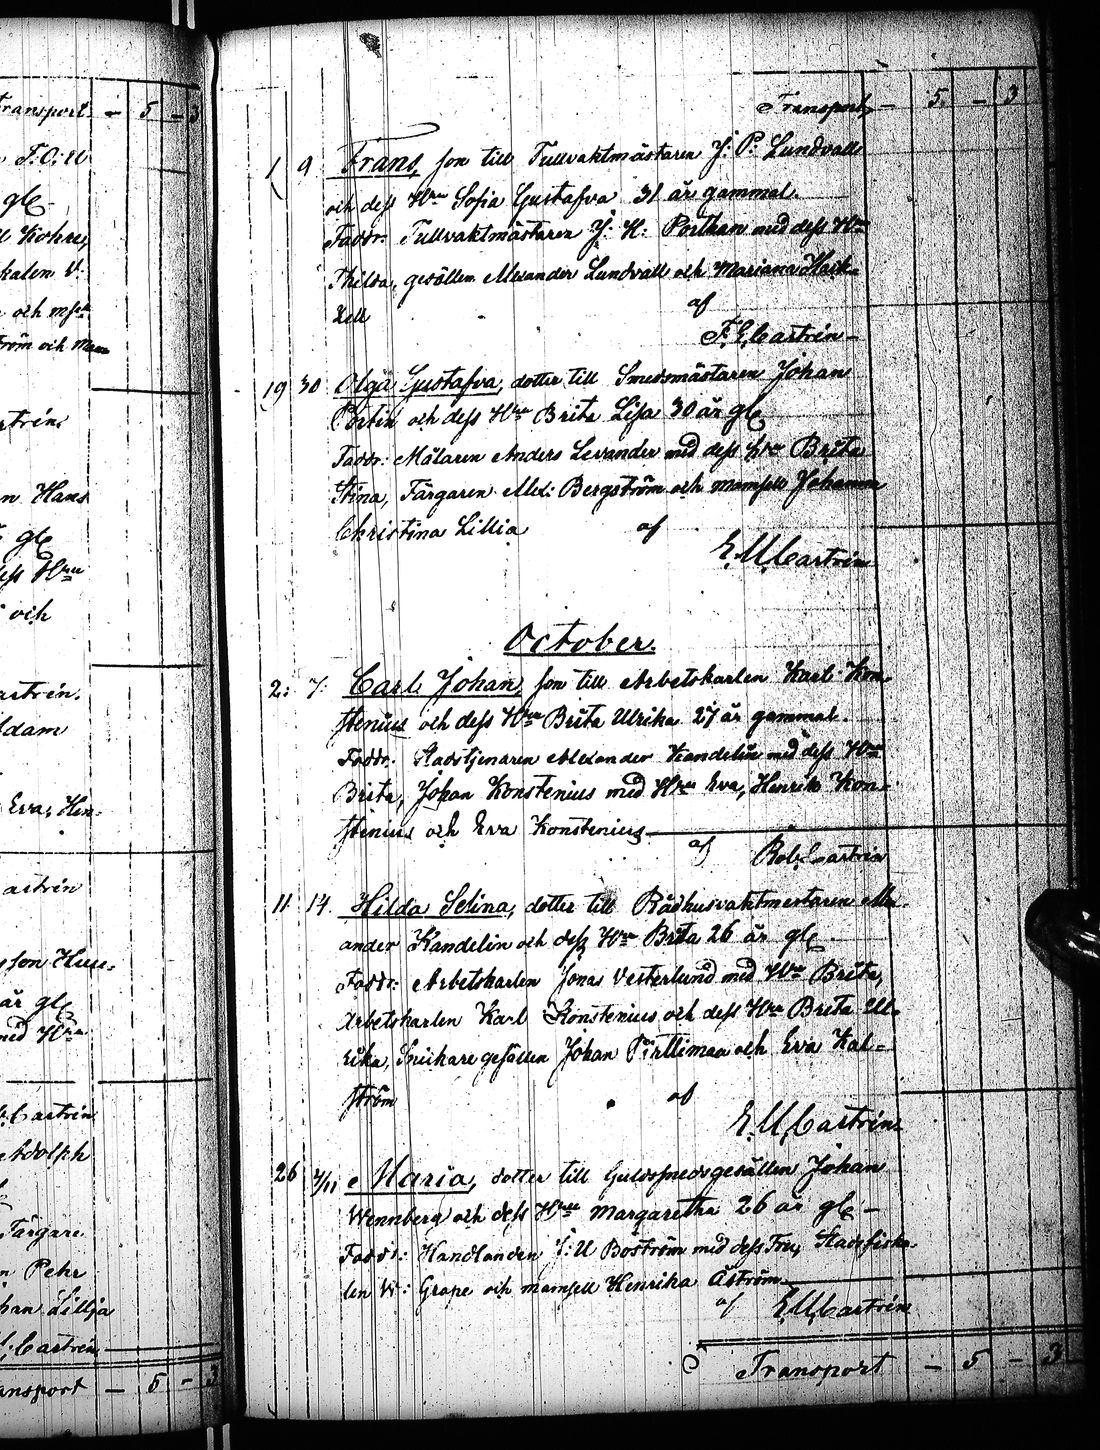 Transport - 5 - 3
T. C. U
gl
Kohre,
kalen V.
och msll
ström och Mar
strén
n Hans
gl
dess Hru
och
astrén.
Adam
Eva, Hen-
astrén
sson Huu-
år gl
med Hru
Castrén
Adolph
Färgare
n Pehr
han Lillja
Castrén
Transport - 5 - 3
Transport - 5 - 3
1 9 Frans, son till Tullvaktmästaren J. P. Lundvall
och dess Hru Sofia Gustafva 31 år gammal.
Faddr: Tullvaktmästaren J. H. Porthan med dess Hru
Thilda, gesällen Alexander Lundvall och Mariana Hack-
zell af
F. E. Castrén
19 30 Olga Gustafva, dotter till Smedsmästaren Johan
Portin och dess Hru Brita Lisa 30 år gl
Faddr: Målaren Anders Levander med dess Hru Brita
Stina, Färgaren Alex: Bergström och mamsell Johanna
Christina Lillia af
E. M. Castrén
October.
2: 7: Carl Johan, son till Arbetskarlen Karl Kon-
stenius och dess Hru Brita Ulrika 27 år gammal.
Faddr. Stadstjenaren Alexander Kandelin med dess Hru
Brita, Johan Konstenius med Hru Eva, Henrik Kon-
stenius och Eva Konstenius
af Rob. Castrén
11 14. Hilda Selina, dotter till Rådhusvaktmestaren Alex-
ander Kandelin och dess Hru Brita 26 år gl
Faddr: Arbetskarlen Jonas Vesterlund med Hru Brita,
Arbetskarlen Karl Konstenius och dess Hru Brita Ul-
rika, Snickaregesällen Johan Pirttimaa och Eva Kal-
ström af
E. M. Castrén
26 4/11 Maria, dotter till Guldsmedsgesällen Johan
Wennberg och dess Hru Margaretha 26 år gl -
Faddr: Handlanden J. U Boström med dess Fru, Stadsfiska-
len W: Grape och mamsell Henrika Åström
af E. M. Castrén
Transport - 5 - 3